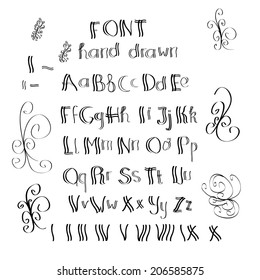 FONT
hand drawn
! -
Aa Bb Cc Dd Ee
Ff Gg Hh Ii Jj Kk
Ll Mm Nn Oo Pp
Qq Rr Ss Tt Uu
Vv Ww Xx Yy Zz
I II III IV V VI VII VIII IX X
shutterstock.com · 206585875